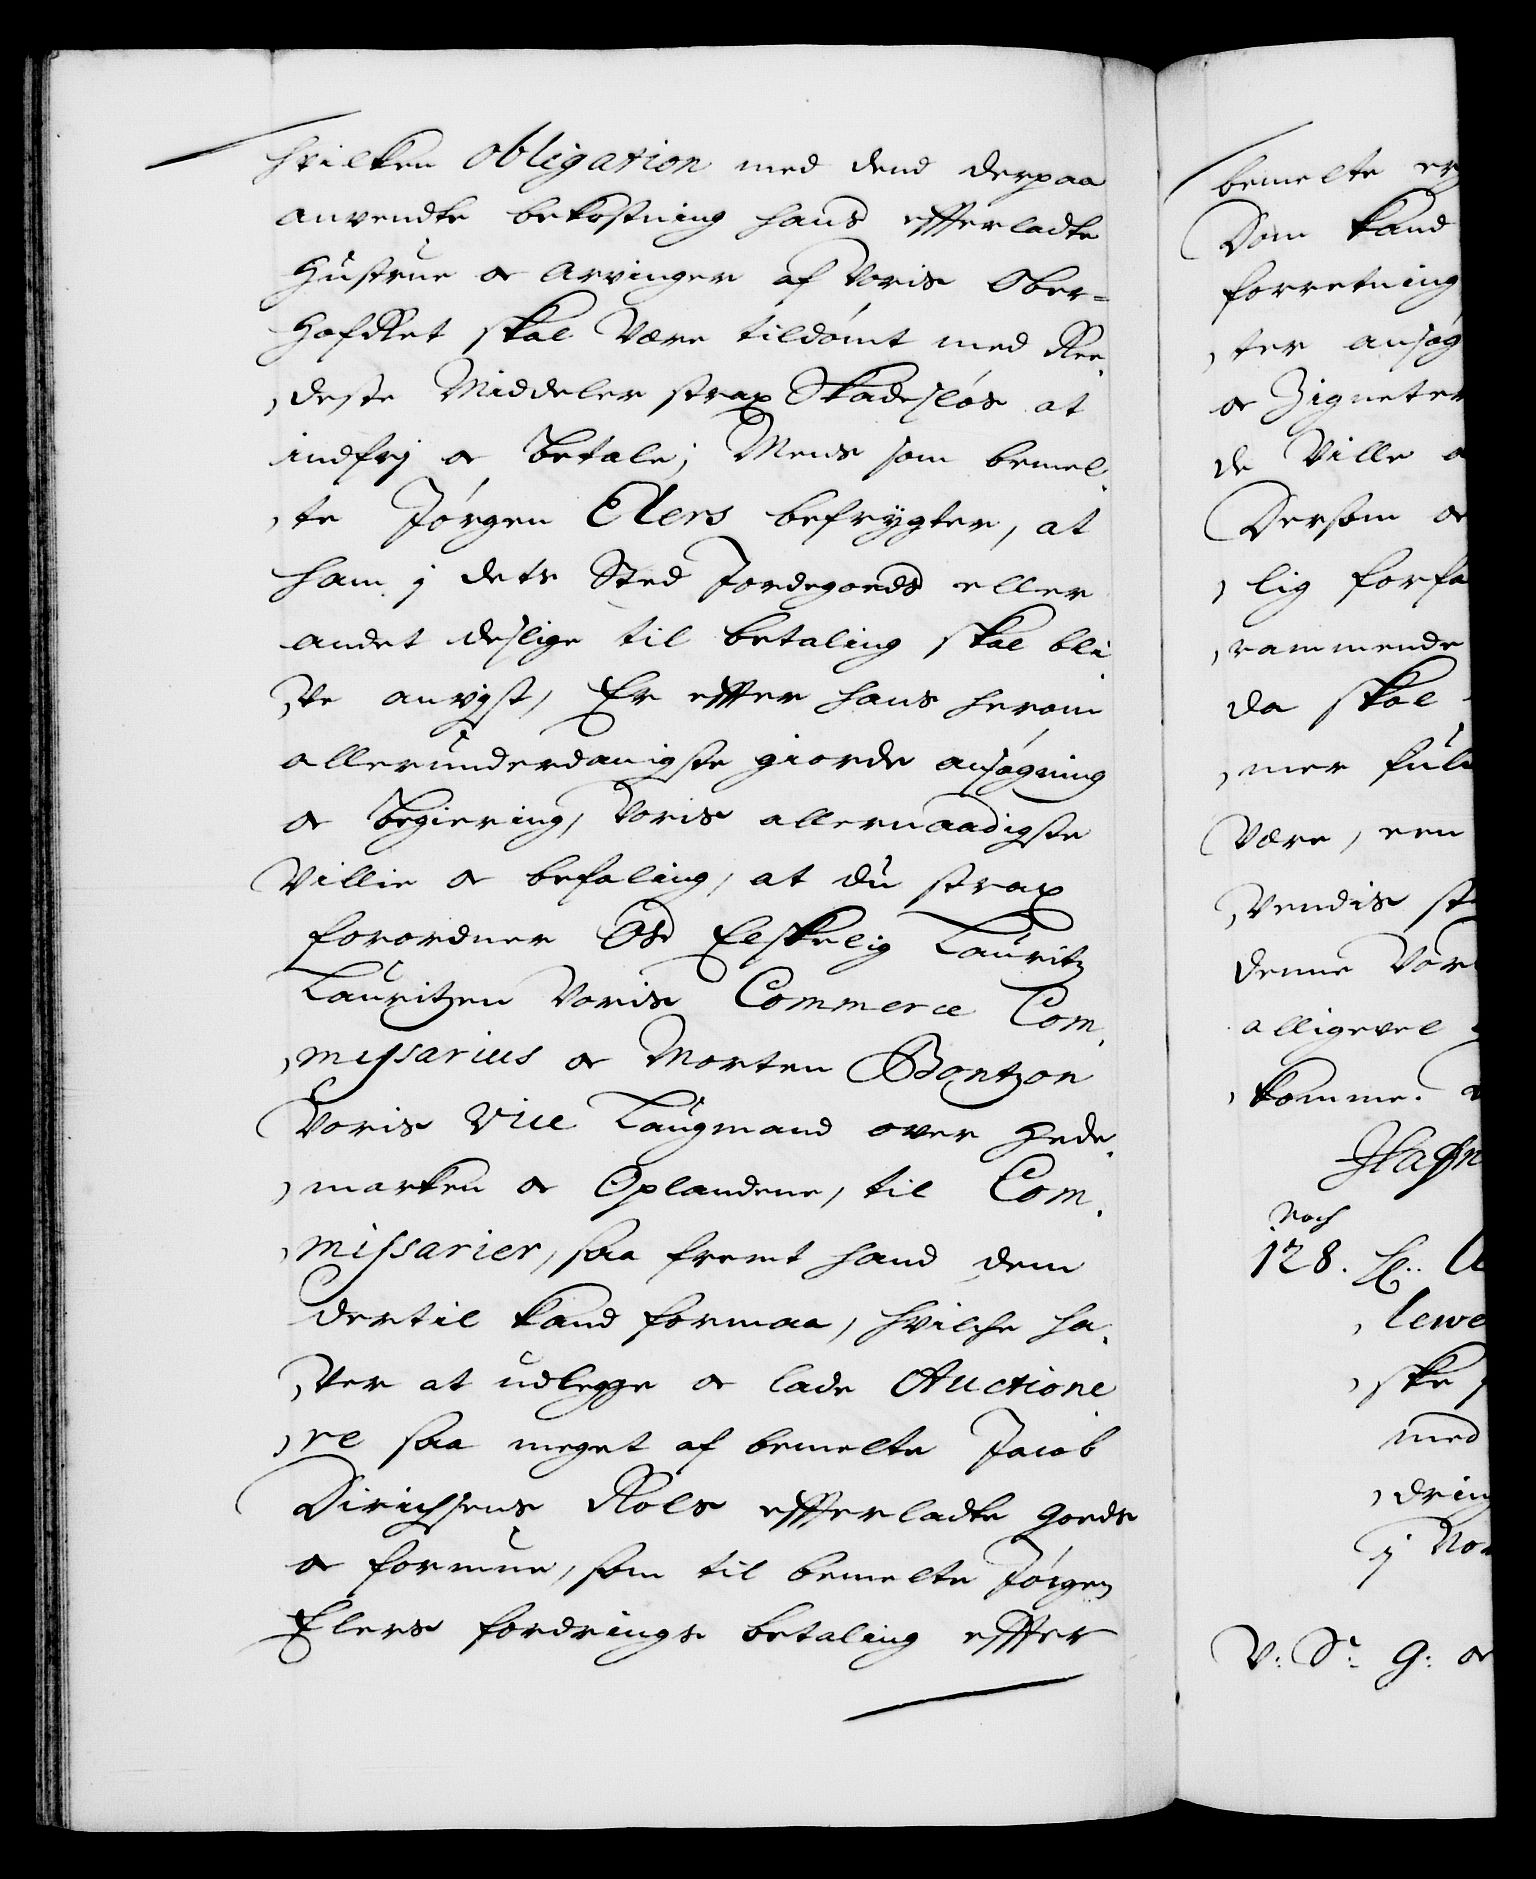 hvilken obligation med dend derpaa
anvendte bekostning hans efterladte
Hustrue oc Arvinger af Voris Ober=
HofRet skal Være tildømt med Ree,
,deste Middeler strax Skadesløs at
indfrj oc Betale; Mens som bemel,
,te Jørgen Elers befrygter, at
ham j dets Sted Jordegoeds eller
andet deslige til betaling skal bli
,Ve anvist, Er efter hans herom
allerunderdanigste giorde ansøgning
oc Begiering, Voris allernaadigste
Villie oc befaling, at du strax
forordner Os Elskelig Lauritz
Lauritzen Voris Commerce Com,
,missarius oc Morten Bontzon
Voris Vice Laugmand over Hede,
,marken oc Oplandene, til Com,
,missarier, saa fremt hand dem
dertil kand formaa, hvilche ha,
,Ver at udlegge oc lade Auctione
,re saa meget af bemelte Jacob
Dirichsens Rols efterladte goeds
oc formue, som til bemelte Jørgen
Elers fordrings betaling efter
bemelte
Dom kand
forretning
,ter ansøg
oc Zigneter
de Ville
Dersom oc
,lig forfa
,rammende
da skal
,mer ful
Være, een
,Vendis st
denne Vor
alligevel
,komme.
Haffn
Noch
128.
lewe
,ske
med
,dring
j Nor
V: Sr. G: oc